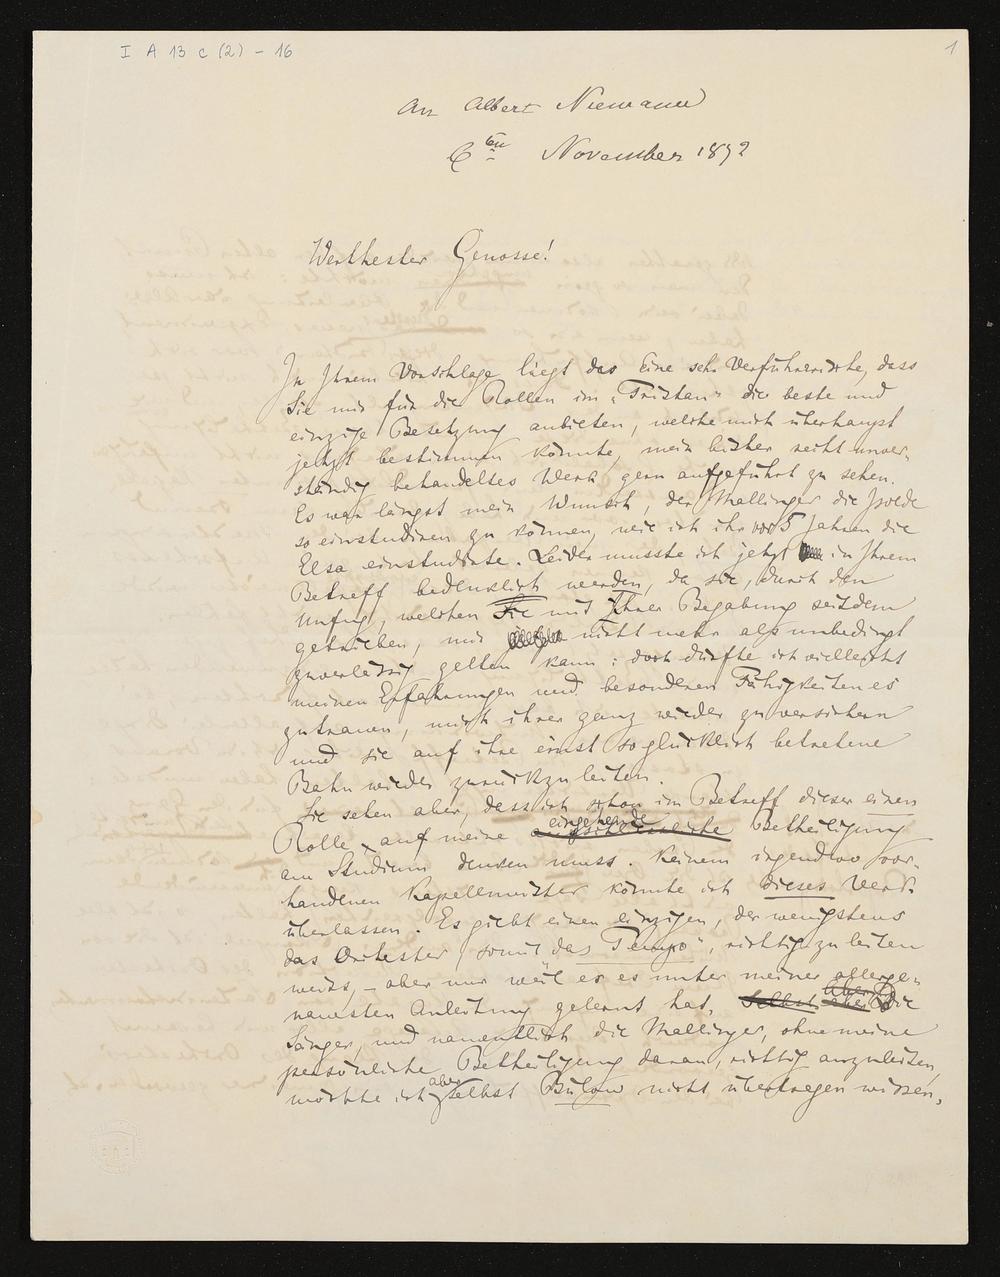 I A 13 c (2) – 16
1
An Albert Niemann
6ten November 1872
Werthester Genosse!
In Ihrem Vorschlage liegt das Eine sehr Verführerische, dass
Sie mir für die Rollen im „Tristan" die beste und
einzige Besetzung anbieten, welche mich überhaupt
jetzt bestimmen könnte, mein bisher recht unver-
ständig behandeltes Werk gern aufgeführt zu sehen.
Es war längst mein Wunsch, der Mallinger die Isolde
so einstudiren zu können, wie ich ihr vor 5 Jahren die
Elsa einstudirte. Leider musste ich jetzt in Ihrem
Betreff bedenklich werden, da sie, durch den
Unfug, welchen Sie mit Ihrer Begabung seitdem
getrieben, mir nicht mehr als unbedingt
zuverlässig gelten kann: doch dürfte ich vielleicht
meinen Erfahrungen und besonderen Fähigkeiten es
zutrauen, mich ihrer ganz wieder zu versichern
und sie auf ihre einst so glücklich betretene
Bahn wieder zurückzuleiten.
Sie sehen aber, dass ich schon im Betreff dieser einen
Rolle, auf meine eingehende Betheiligung
am Studium denken muss. Keinem irgendwo vor-
handenen Kapellmeister könnte ich dieses Werk
überlassen. Es giebt einen einzigen, der wenigstens
das Orchester (somit das „Tempo", richtig zu leiten
weiss, – aber nur weil er es unter meiner allerge-
nauesten Anleitung gelernt hat, Selbst aber Die
Sänger, und namentlich die Mallinger, ohne meine
persönliche Betheiligung daran, richtig anzuleiten,
möchte ich aber selbst Bülow nicht übertragen wissen,